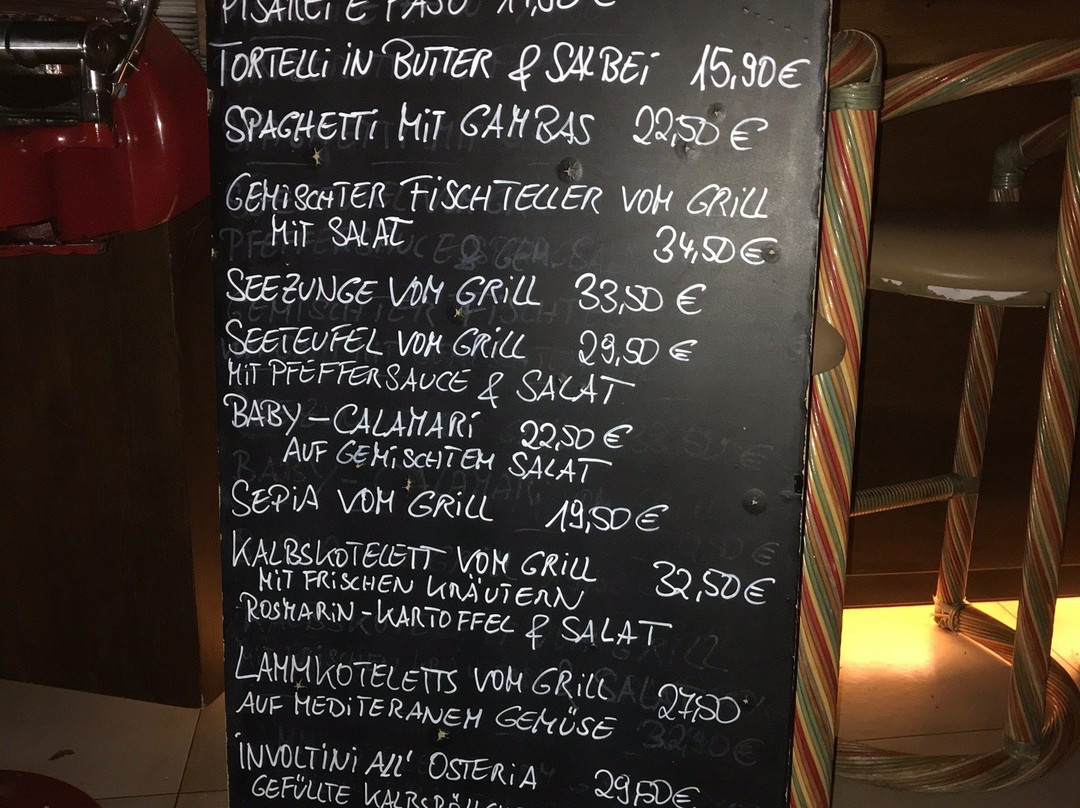 PISAREI E FASO
TORTELLI IN BUTTER & SALBEI 15,90 €
SPAGHETTI MIT GAMBAS 22,50 €
GEMISCHTER FISCHTELLER VOM GRILL
MIT SALAT 34,50 €
SEEZUNGE VOM GRILL 33,50 €
SEETEUFEL VOM GRILL 29,50 €
MIT PFEFFERSAUCE & SALAT
BABY-CALAMARI 22,50 €
AUF GEMISCHTEM SALAT
SEPIA VOM GRILL 19,50 €
KALBSKOTELETT VOM GRILL 32,50 €
MIT FRISCHEN KRÄUTERN
ROSMARIN-KARTOFFEL & SALAT
LAMMKOTELETTS VOM GRILL 27,50
AUF MEDITERANEM GEMÜSE
INVOLTINI ALL' OSTERIA 29,50 €
GEFÜLLTE